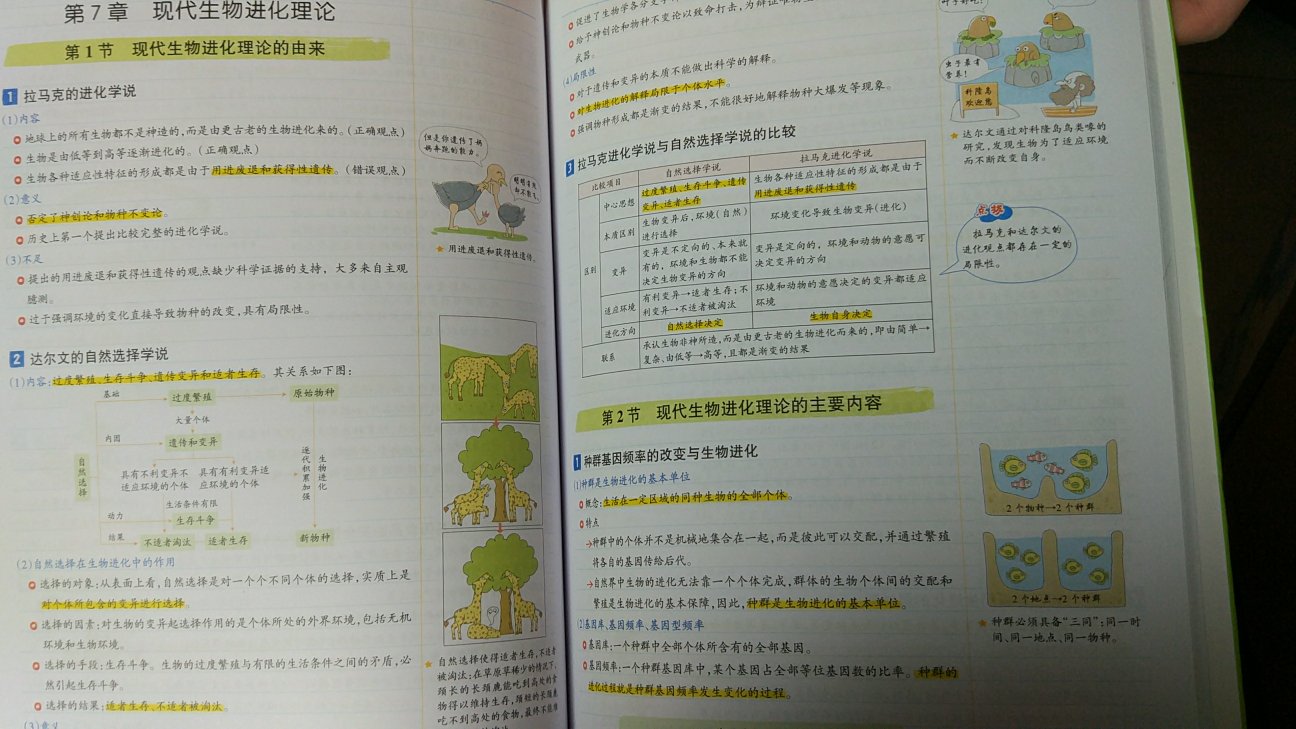 第7章 现代生物进化理论
第1节 现代生物进化理论的由来
1 拉马克的进化学说
(1)内容
地球上的所有生物都不是神造的,而是由更古老的生物进化来的。(正确观点)
生物是由低等到高等逐渐进化的。(正确观点)
生物各种适应性特征的形成都是由于用进废退和获得性遗传。(错误观点)
(2)意义
否定了神创论和物种不变论。
历史上第一个提出比较完整的进化学说。
(3)不足
提出的用进废退和获得性遗传的观点缺少科学证据的支持,大多来自主观
臆测。
过于强调环境的变化直接导致物种的改变,具有局限性。
但是你遗传了妈
妈奔跑的能力。
★ 用进废退和获得性遗传。
2 达尔文的自然选择学说
(1)内容:过度繁殖、生存斗争、遗传变异和适者生存。其关系如下图:
基础 过度繁殖 原始物种
大量个体
内因 遗传和变异
自然选择
具有不利变异不 具有有利变异适
适应环境的个体 应环境的个体
逐代积累加强
生物进化
生活条件有限
动力 生存斗争
结果 不适者淘汰 适者生存 新物种
(2)自然选择在生物进化中的作用
选择的对象:从表面上看,自然选择是对一个个不同个体的选择,实质上是
对个体所包含的变异进行选择。
选择的因素:对生物的变异起选择作用的是个体所处的外界环境,包括无机
环境和生物环境。
选择的手段:生存斗争。生物的过度繁殖与有限的生活条件之间的矛盾,必
然引起生存斗争。
选择的结果:适者生存、不适者被淘汰。
(3)意义
★ 自然选择使得适者生存,不适者
被淘汰:在草原草稀少的情况下,
颈长的长颈鹿能吃到高处的食
物得以维持生存,颈短的长颈鹿
吃不到高处的食物,最终不能维
促进了生物学各分支学
给予神创论和物种不变论以致命打击,为辩证唯物主
武器。
(4)局限性
对于遗传和变异的本质不能做出科学的解释。
对生物进化的解释局限于个体水平。
强调物种形成都是渐变的结果,不能很好地解释物种大爆发等现象。
虫子最有
营养!
科隆岛
欢迎您
★ 达尔文通过对科隆岛鸟类喙的
研究,发现生物为了适应环境
而不断改变自身。
3 拉马克进化学说与自然选择学说的比较
比较项目 自然选择学说 拉马克进化学说
区别
中心思想 过度繁殖、生存斗争、遗传 生物各种适应性特征的形成都是由于
变异、适者生存 用进废退和获得性遗传
本质区别 生物变异后,环境(自然) 环境变化导致生物变异(进化)
进行选择
变异 变异是不定向的、本来就 变异是定向的,环境和动物的意愿可
有的,环境和生物都不能 决定变异的方向
决定生物变异的方向
适应环境 有利变异→适者生存;不 环境和动物的意愿决定的变异都适应
利变异→不适者被淘汰 环境
进化方向 自然选择决定 生物自身决定
联系 承认生物非神所造,而是由更古老的生物进化而来的,即由简单→
复杂、由低等→高等,且都是渐变的结果
点拨
拉马克和达尔文的
进化观点都存在一定的
局限性。
第2节 现代生物进化理论的主要内容
1 种群基因频率的改变与生物进化
(1)种群是生物进化的基本单位
概念:生活在一定区域的同种生物的全部个体。
特点
→种群中的个体并不是机械地集合在一起,而是彼此可以交配,并通过繁殖
将各自的基因传给后代。
→自然界中生物的进化无法靠一个个体完成,群体的生物个体间的交配和
繁殖是生物进化的基本保障,因此,种群是生物进化的基本单位。
(2)基因库、基因频率、基因型频率
基因库:一个种群中全部个体所含有的全部基因。
基因频率:一个种群基因库中,某个基因占全部等位基因数的比率。种群的
进化过程就是种群基因频率发生变化的过程。
2个物种→2个种群
2个地点→2个种群
★ 种群必须具备“三同”:同一时
间、同一地点、同一物种。